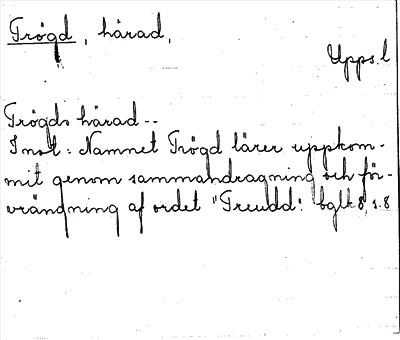 Trögd, härad,
Upps. l
Trögds härad --
Inst: Namnet Trögd lärer uppkom-
mit genom sammandragning och för-
vrängning af ordet "Treudd".
s. 8